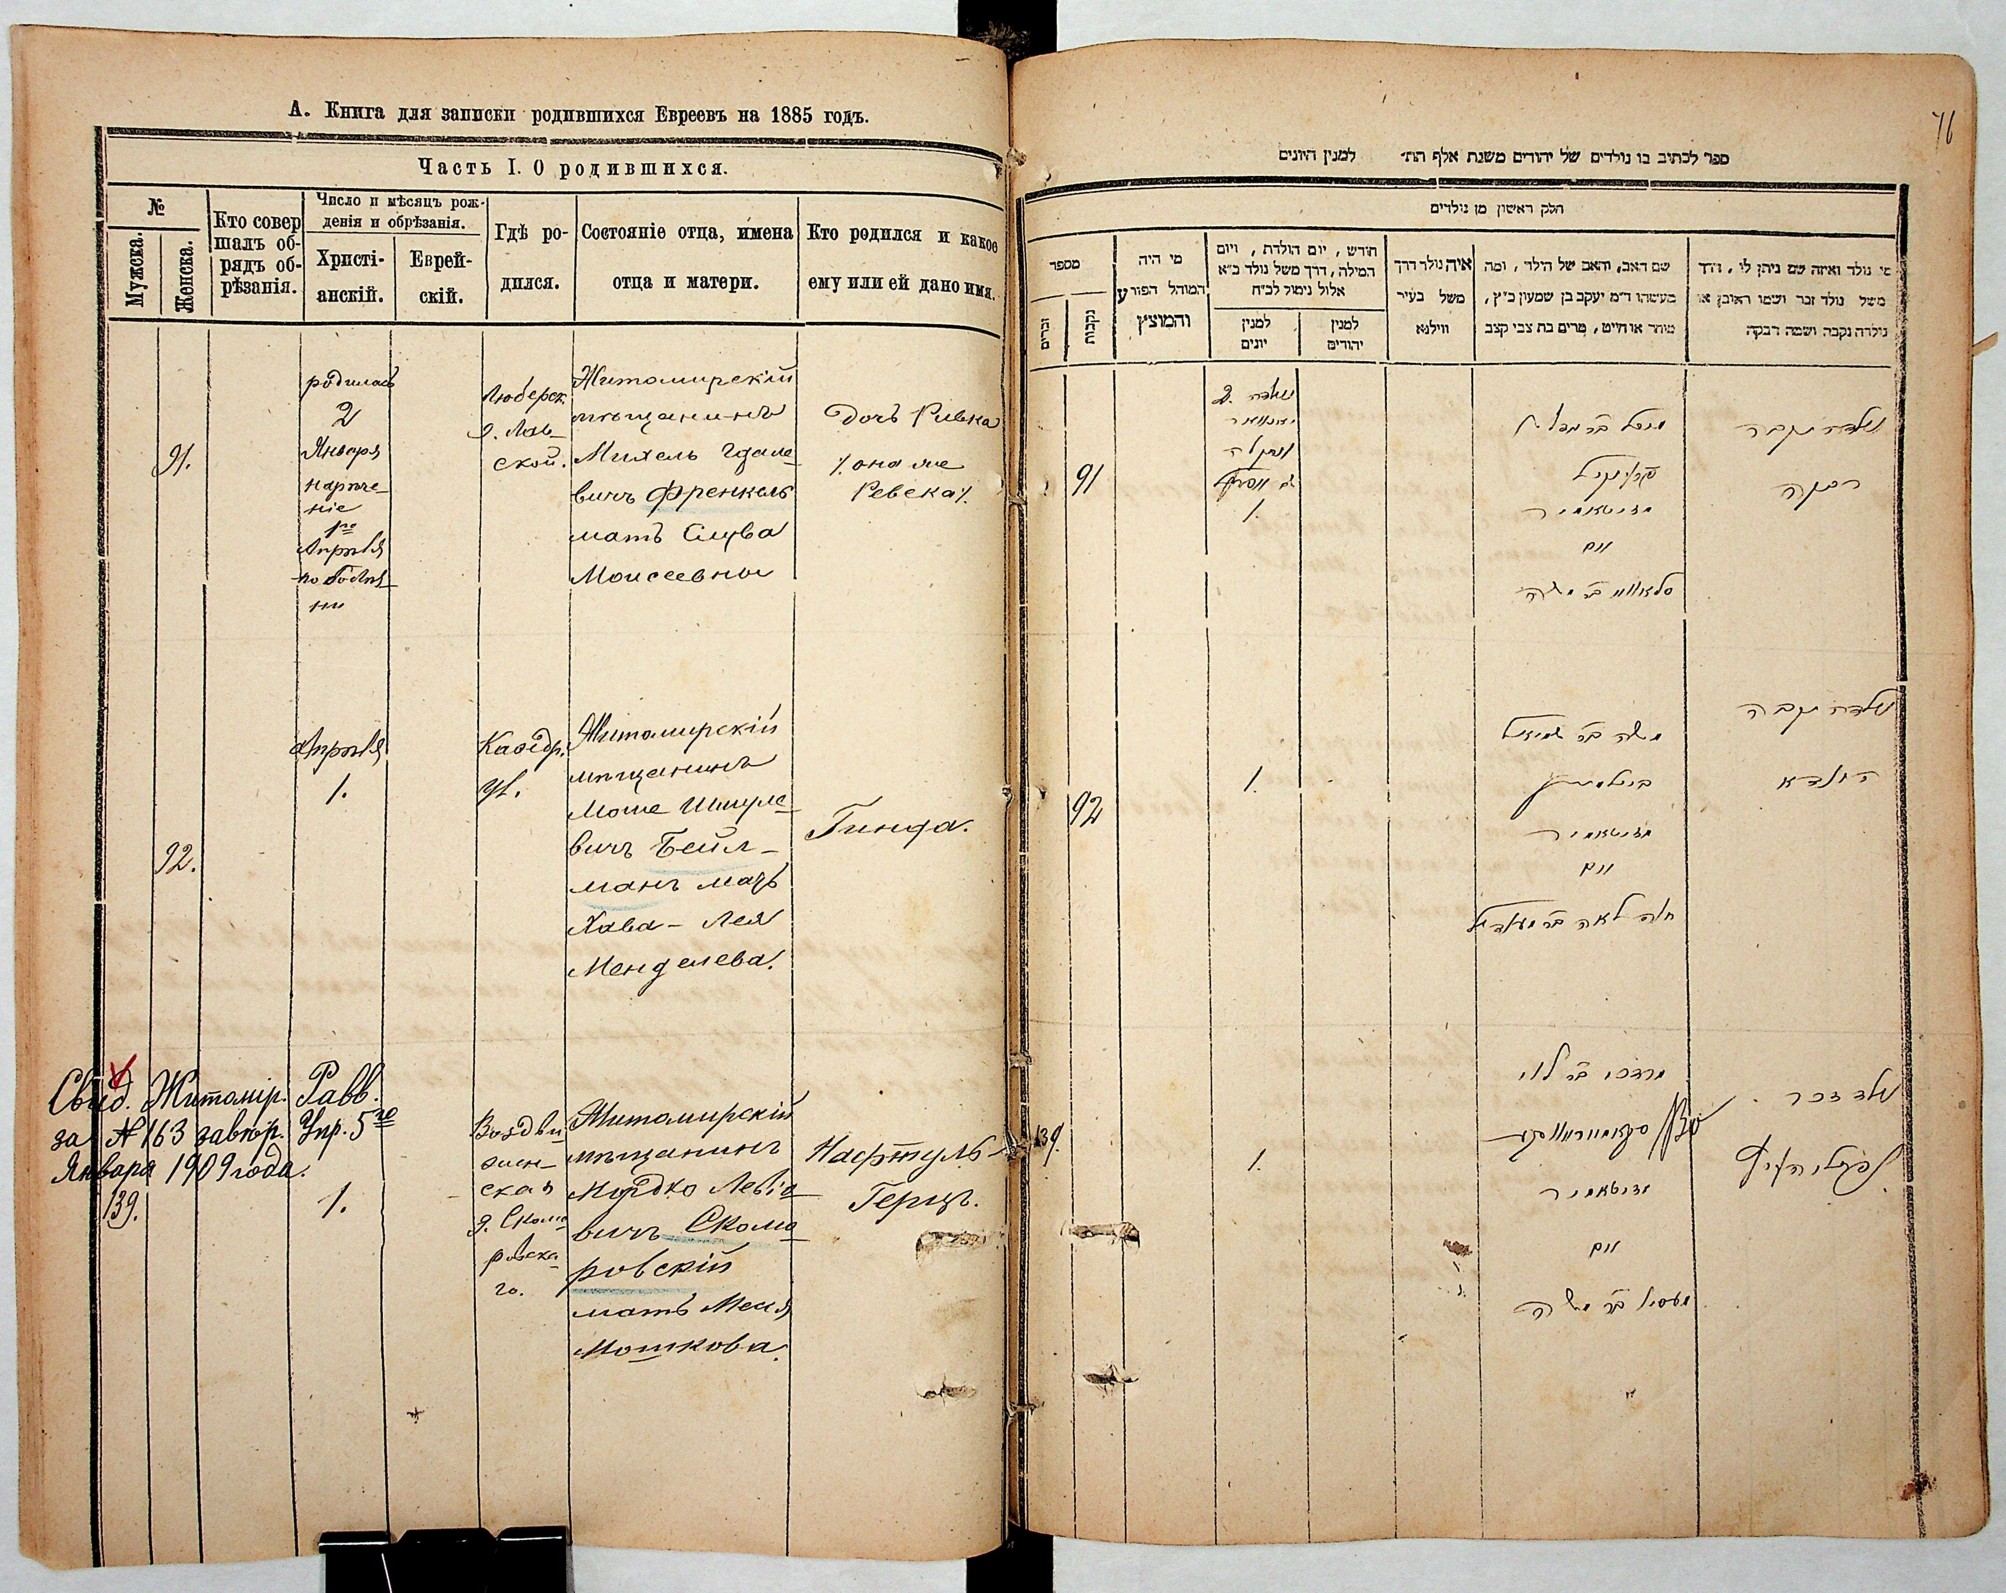 А. Книга для записки родившихся Евреевъ на 1885 годъ.
Часть I. О родившихся.
№
Мужска.
Женска.
Кто совер
шалъ об-
рядъ об-
рѣзанія.
Число и мѣсяцъ рож-
денія и обрѣзанія.
Христі-
анскій.
Еврей-
скій.
Гдѣ ро-
дился.
Состояніе отца, имена
отца и матери.
Кто родился и какое
ему или ей дано имя.
91.
родилась
2
Января
нарѣче-
ніе
1го
Апрѣля
по болѣз-
ни
Житомирскій
мѣщанинъ
Михель Гдале-
вичъ Френкель
мать Слува
Моисеевна
Дочь Ривка
она же
Ревека
92.
Апрѣля
1.
Кафедр.
ул.
Житомирскій
мѣщанинъ
Моше Шмуле-
вичъ Бейл-
манъ мать
Хава-Лея
Менделева.
Гинда.
Свид. Житомір. Равв.
за № 163 завѣр. Упр. 5го
Января 1909 года.
139.
1.
Воздви
жен-
ская
д. Скомо
ровска
го.
Житомирскій
мѣщанинъ
Мордко Левіо
вичъ Скомо
ровскій
мать Меня
Мошкова.
Нафтуль-
Герцъ.
76
ספר לכתיב בו נולדים של יהודים משנת אלף תת׳ למנין היונים
חלק ראשון מן נולדים
מספר
זכרים
נקבות
מי היה
המוהל הפורע
והמוצץ
חודש, יום הולדת, ויום
המילה, דרך משל נולד כ״א
אלול נימול לכ״ח
למנין
יונים
למנין
יהודים
איה נולד דרך
משל בעיר
ווילנא
שם האב, והאם של הילד, ומה
מעשהו ד״מ יעקב בן שמעון כ״ץ,
סוחר או חייט, מרים בת צבי קצב
מי נולד ואיזה שם ניתן לו, דרך
משל נולד זכר ושמו ראובן או
נולדה נקבה ושמה רבקה
91
1.
פרענקיל
מזיטאמיר
ואם
נולדה נקבה
רבקה
92
1.
ביילמאן
מזיטאמיר
ואם
נולדה נקבה
הינדא
139.
1.
מרדכי בר לוי
סקאמאראווסקי
מזיטאמיר
ואם
נולד זכר
נפתלי הערץ